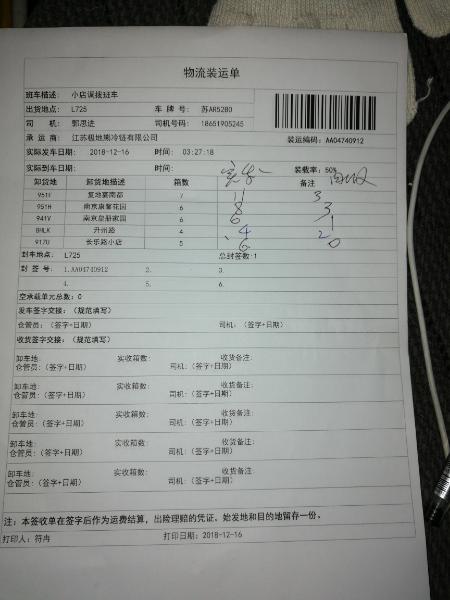 物流装运单
班车描述: 小店课拨班车
出货地点: L725 车 牌 号: 苏AR5280
司 机: 郭思进 司机号码: 18651905245
承 运 商: 江苏极地熊冷链有限公司 装运编码: AA04740912
实际发车日期: 2018-12-16 时间: 03:27:18
实际到车日期: 时间: 装载率: 50%
卸货地 卸货地描述 箱数 备注
951F 复地宴南都 7 11 3
951H 南京康馨花园 8 3
941V 南京皇册家园 6 6 1
8HLK 升州路 4 4 2
917U 长乐路小店 5 6 0
封车地点: L725 总封签数:1
封 签 号: 1.AA04740912 2. 3.
4. 5. 6.
空承载单元总数: 0
发车签字交接: (规范填写)
仓管员: (签字+日期) 司机: (签字+日期)
收货签字交接: (规范填写)
卸车地: 实收箱数: 收货备注:
仓管员: (签字+日期) 司机: (签字+日期)
卸车地: 实收箱数: 收货备注:
仓管员: (签字+日期) 司机: (签字+日期)
卸车地: 实收箱数: 收货备注:
仓管员: (签字+日期) 司机: (签字+日期)
卸车地: 实收箱数: 收货备注:
仓管员: (签字+日期) 司机: (签字+日期)
卸车地: 实收箱数: 收货备注:
仓管员: (签字+日期) 司机: (签字+日期)
注: 本签收单在签字后作为运费结算, 出险理赔的凭证。始发地和目的地留存一份。
打印人: 符冉 打印日期: 2018-12-16